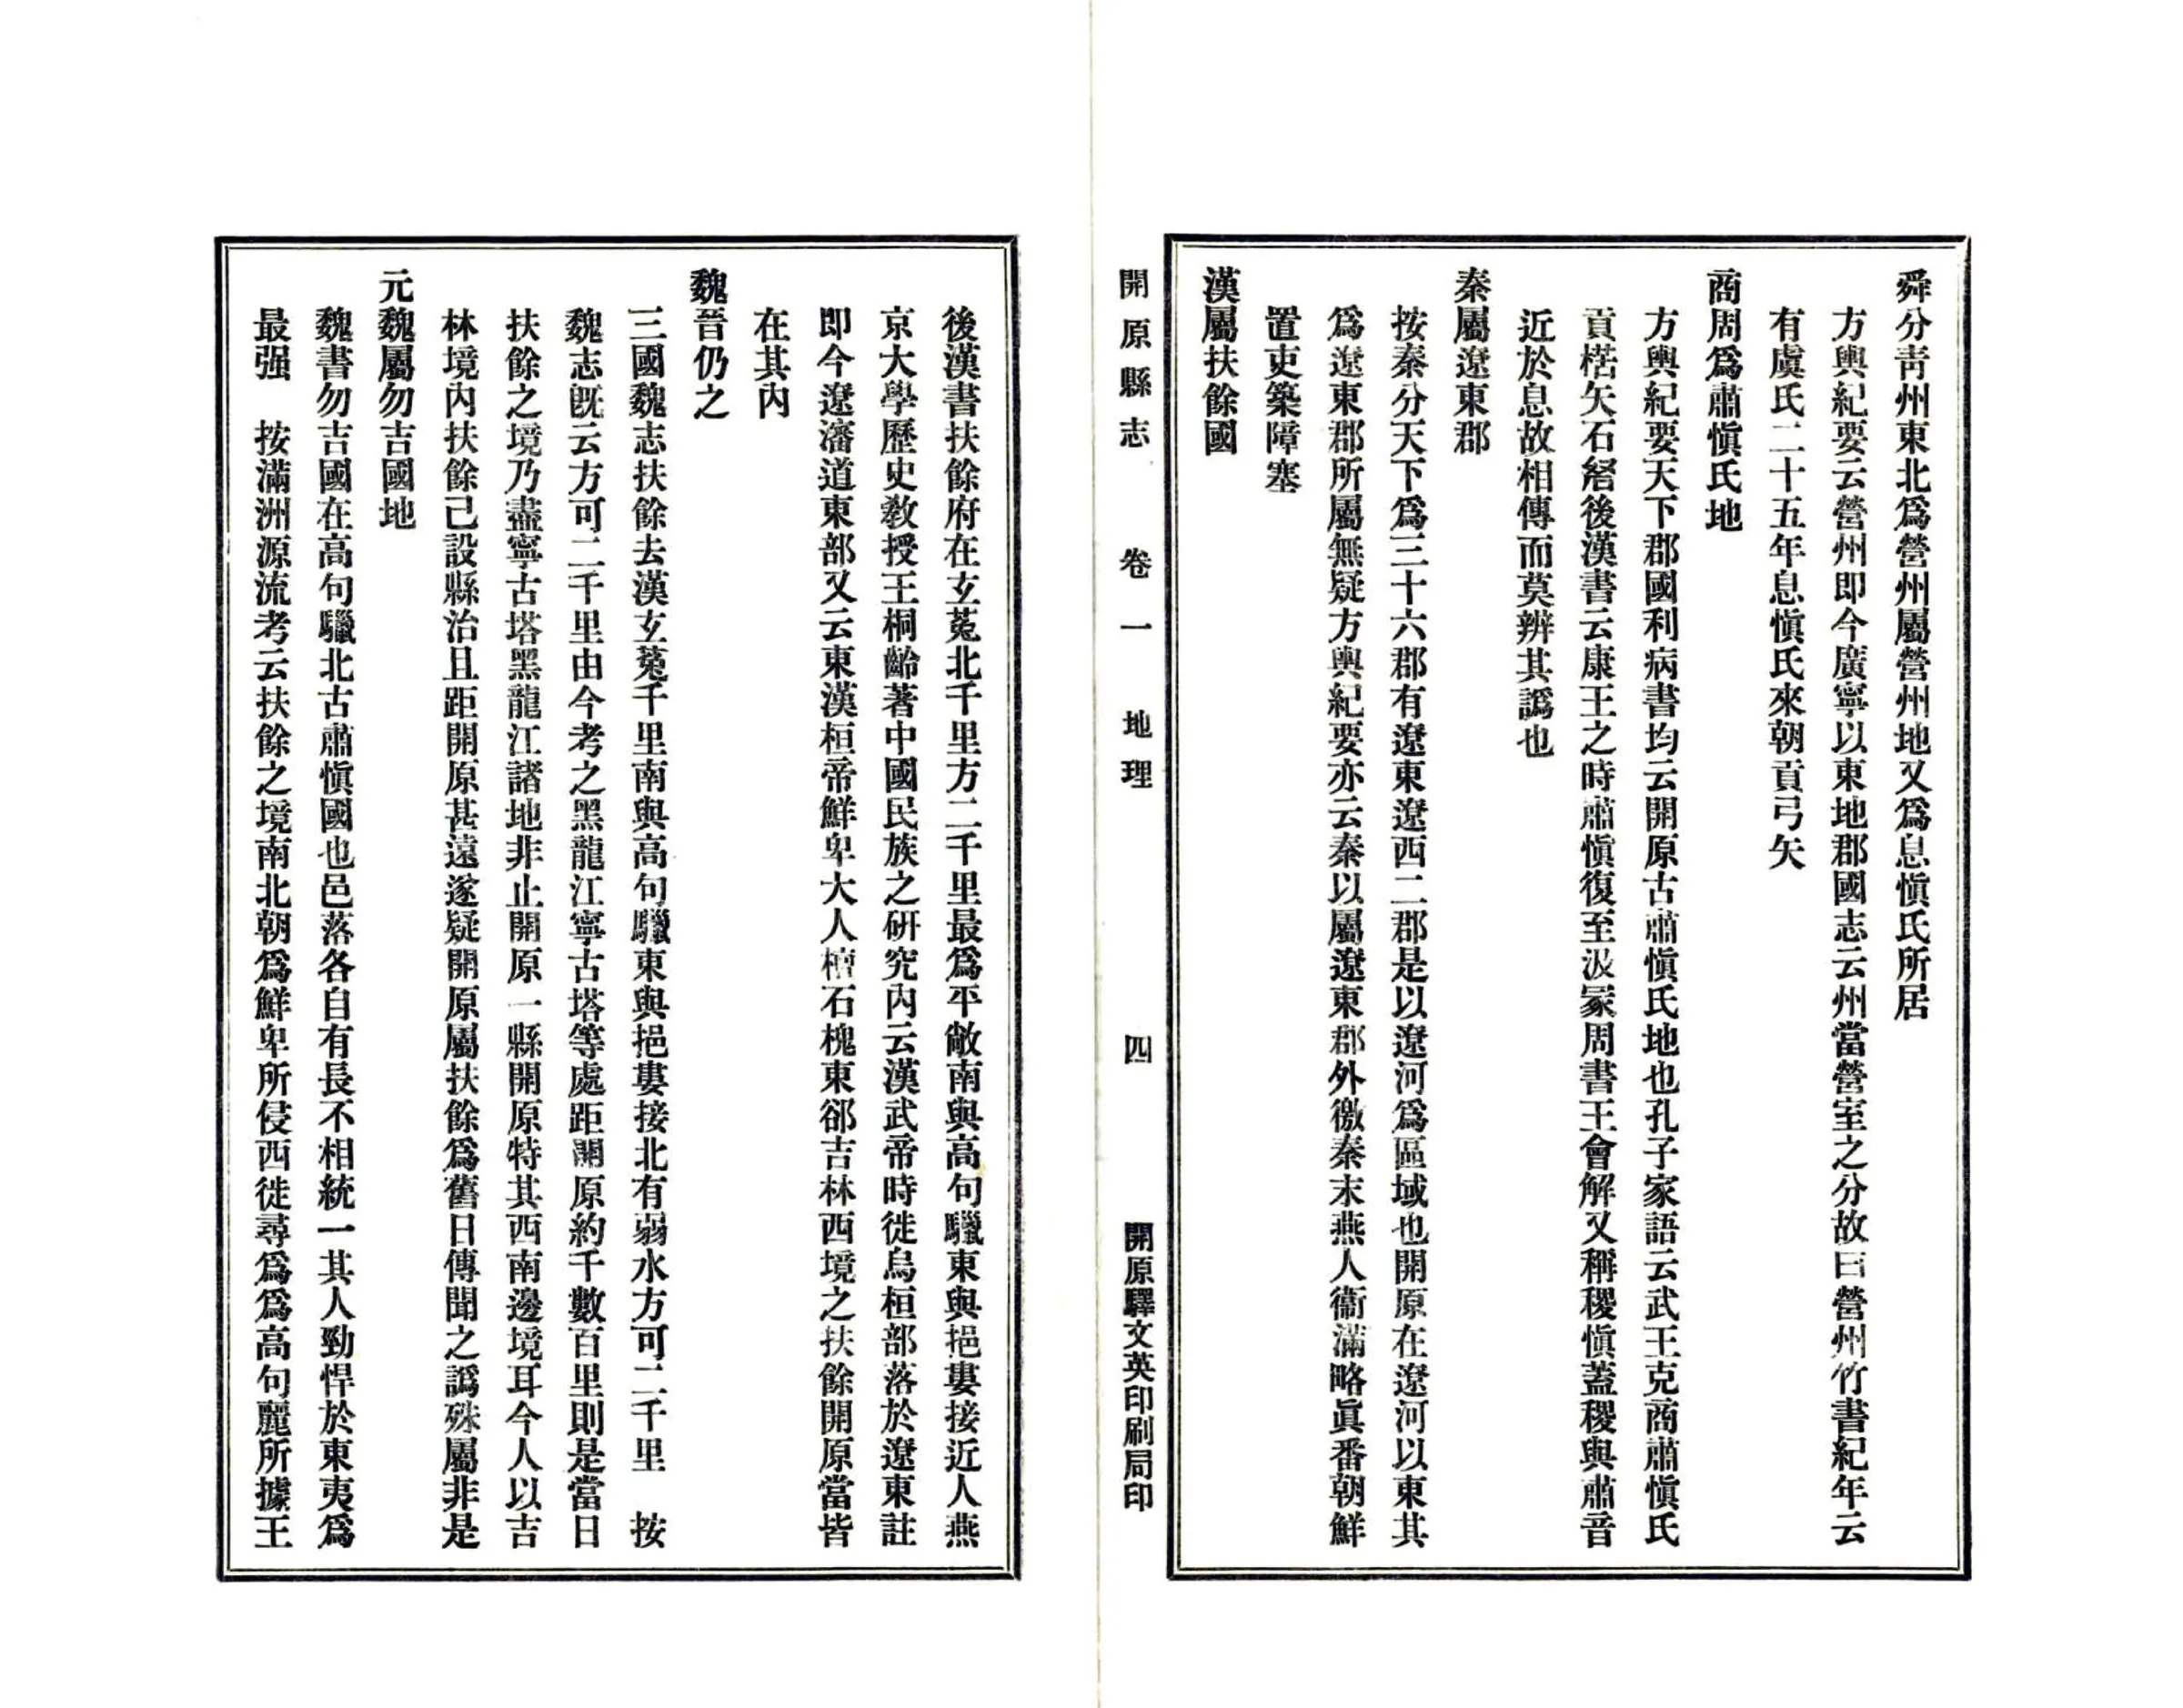 舜分靑州東北爲營州屬營州地又爲息愼氏所居
方輿紀要云營州即今廣寧以東地郡國志云州當營室之分故曰營州竹書紀年云
有虞氏二十五年息愼氏來朝貢弓矢
商周爲肅愼氏地
方輿紀要天下郡國利病書均云開原古肅愼氏地也孔子家語云武王克商肅愼氏
貢楛矢石砮後漢書云康王之時肅愼復至汲冢周書王會解又稱稷愼蓋稷與肅音
近於息故相傳而莫辨其譌也
秦屬遼東郡
按秦分天下爲三十六郡有遼東遼西二郡是以遼河爲區域也開原在遼河以東其
爲遼東郡所屬無疑方輿紀要亦云秦以屬遼東郡外徼秦末燕人衞滿略眞番朝鮮
置吏築障塞
漢屬扶餘國
開原縣志 卷一 地理 四 開原驛文英印刷局印
後漢書扶餘府在玄菟北千里方二千里最爲平敞南與高句驪東與挹婁接近人燕
京大學歷史敎授王桐齡著中國民族之硏究內云漢武帝時徙烏桓部落於遼東註
即今遼瀋道東部又云東漢桓帝鮮卑大人檀石槐東郤吉林西境之扶餘開原當皆
在其內
魏晉仍之
三國魏志扶餘去漢玄菟千里南與高句驪東與挹婁接北有弱水方可二千里 按
魏志旣云方可二千里由今考之黑龍江寧古塔等處距開原約千數百里則是當日
扶餘之境乃盡寧古塔黑龍江諸地非止開原一縣開原特其西南邊境耳今人以吉
林境內扶餘已設縣治且距開原甚遠遂疑開原屬扶餘爲舊日傳聞之譌殊屬非是
元魏屬勿吉國地
魏書勿吉國在高句驪北古肅愼國也邑落各自有長不相統一其人勁悍於東夷爲
最强 按滿洲源流考云扶餘之境南北朝爲鮮卑所侵西徙尋爲爲高句麗所據王